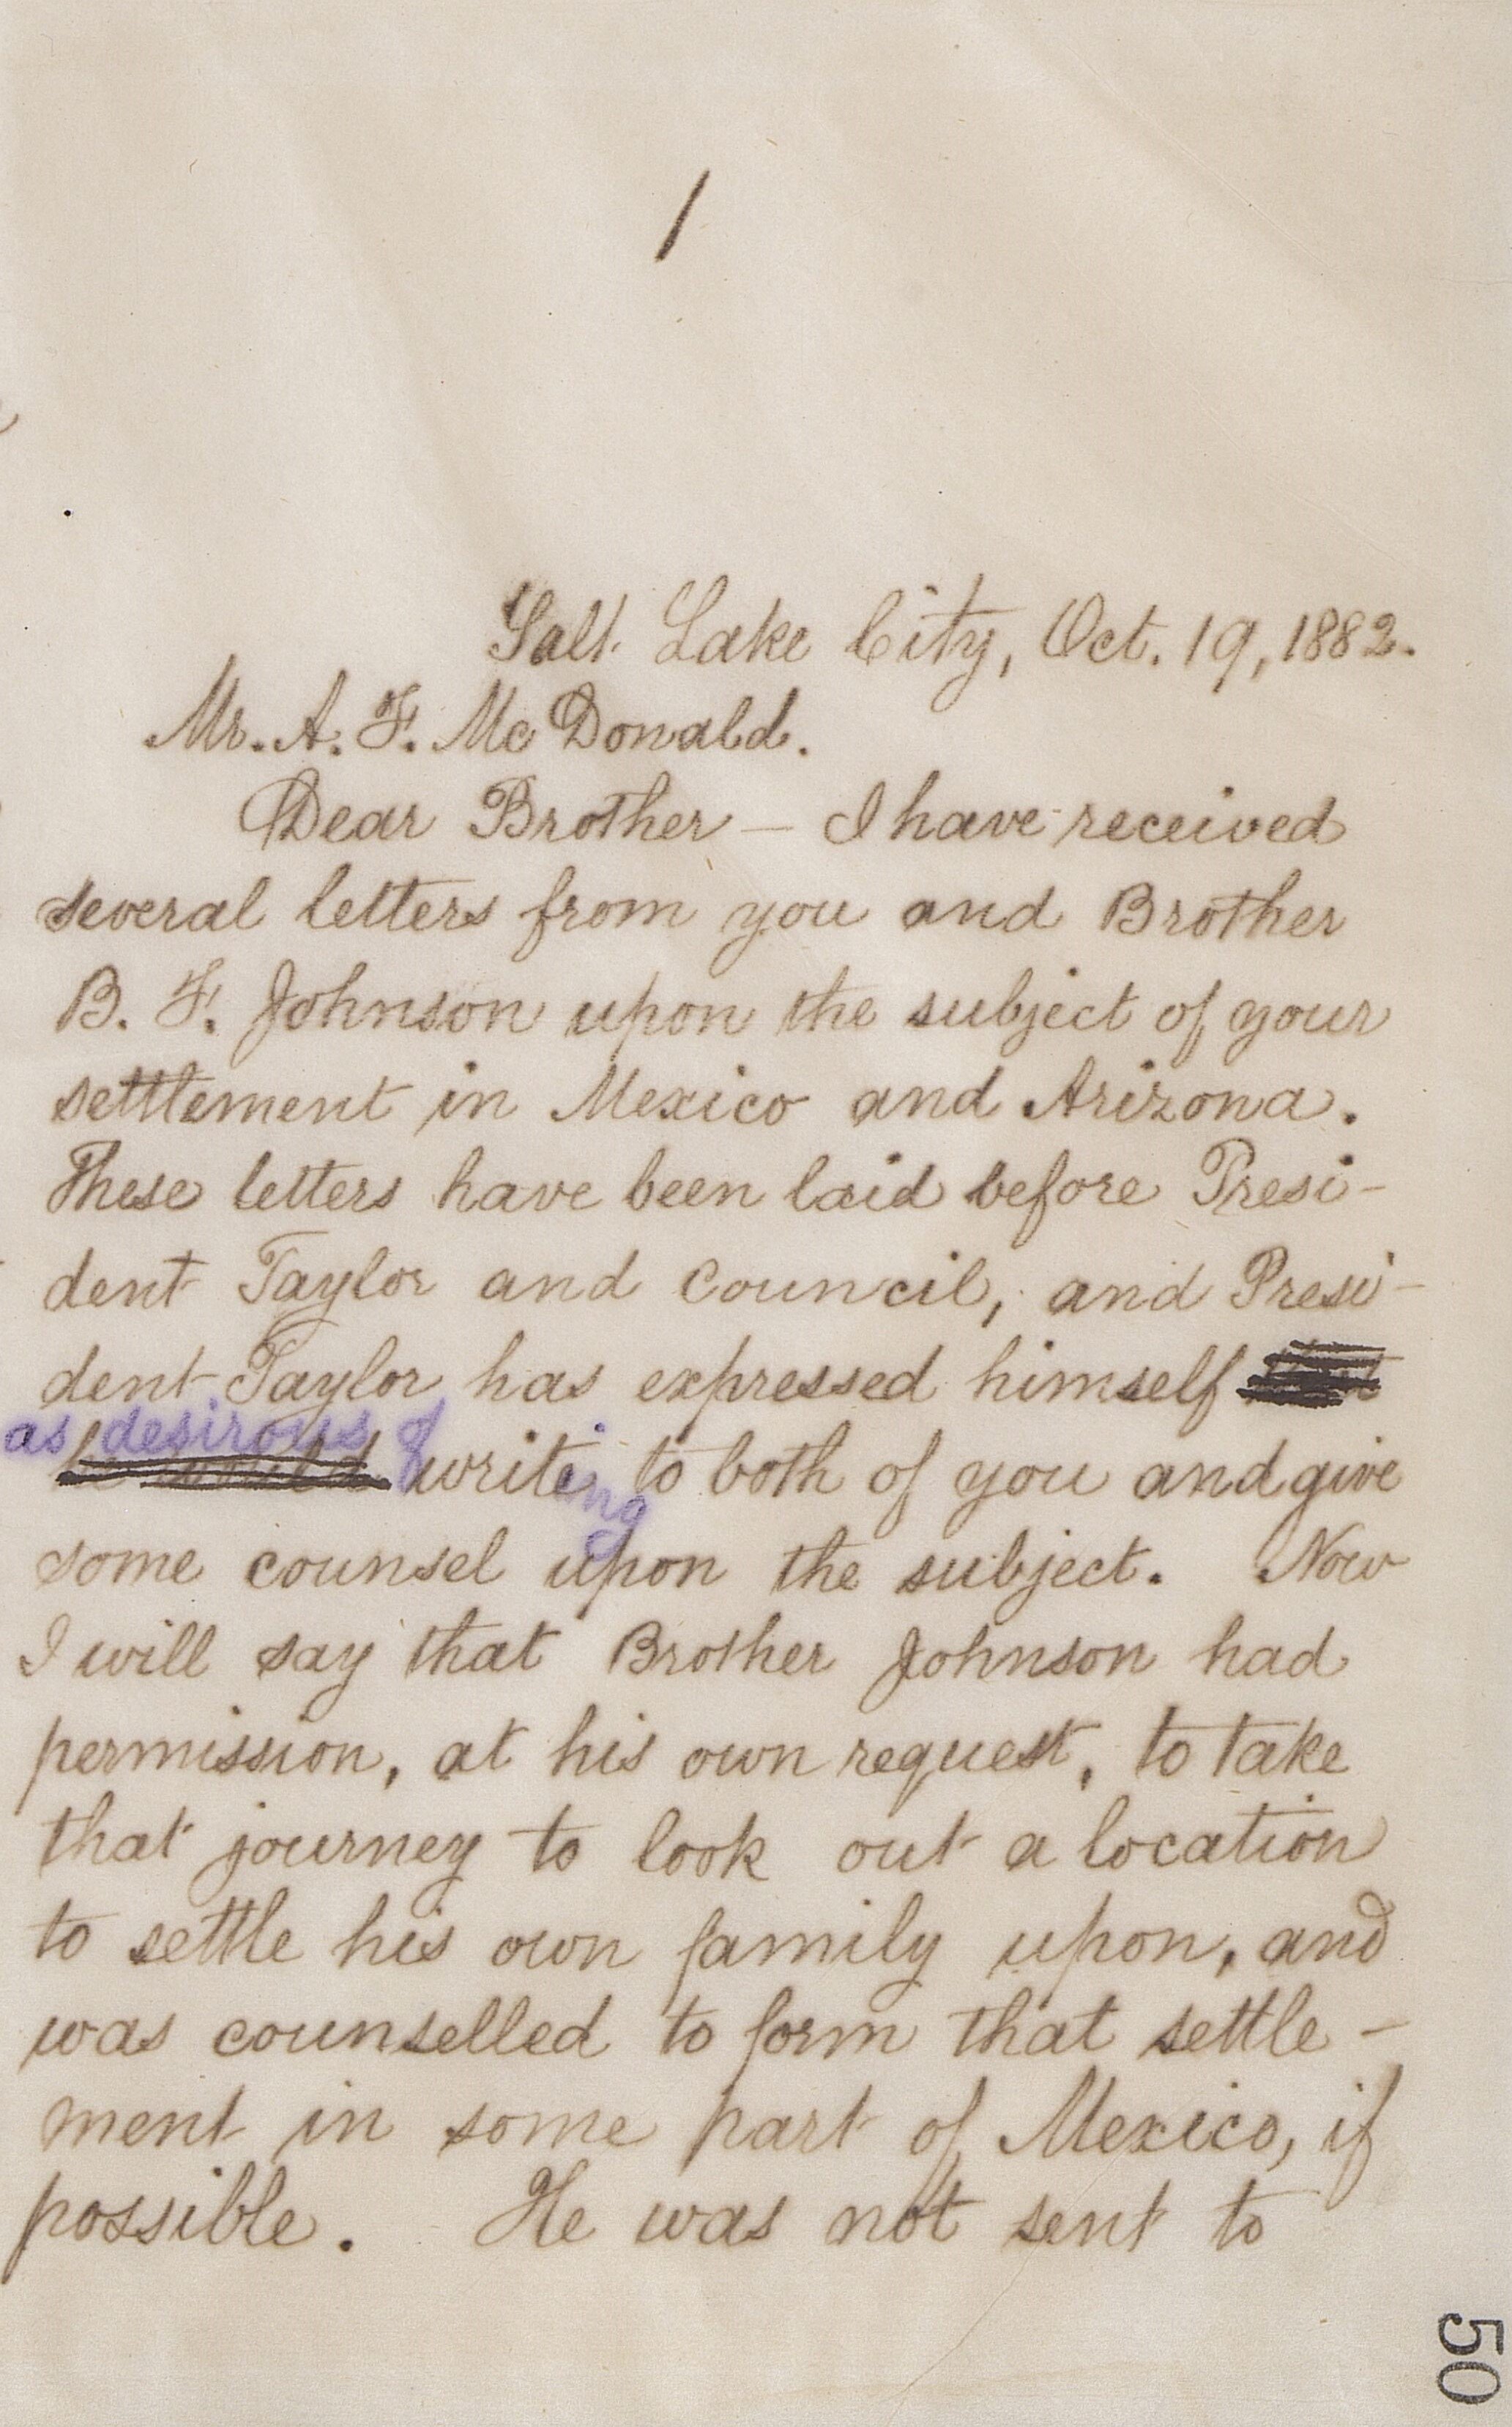 1
Salt Lake City, Oct. 19, 1882.
Mr. A. F. McDonald.
Dear Brother — I have received
several letters from you and Brother
B. F. Johnson upon the subject of your
settlement in Mexico and Arizona.
These letters have been laid before Presi-
dent Taylor and Council, and Presi-
dent Taylor has expressed himself
as desirous of
he would writeing to both of you and give
some counsel upon the subject. Now
I will say that Brother Johnson had
permission, at his own request, to take
that journey to look out a location
to settle his own family upon, and
was counselled to form that settle-
ment in some part of Mexico, if
possible. He was not sent to
50